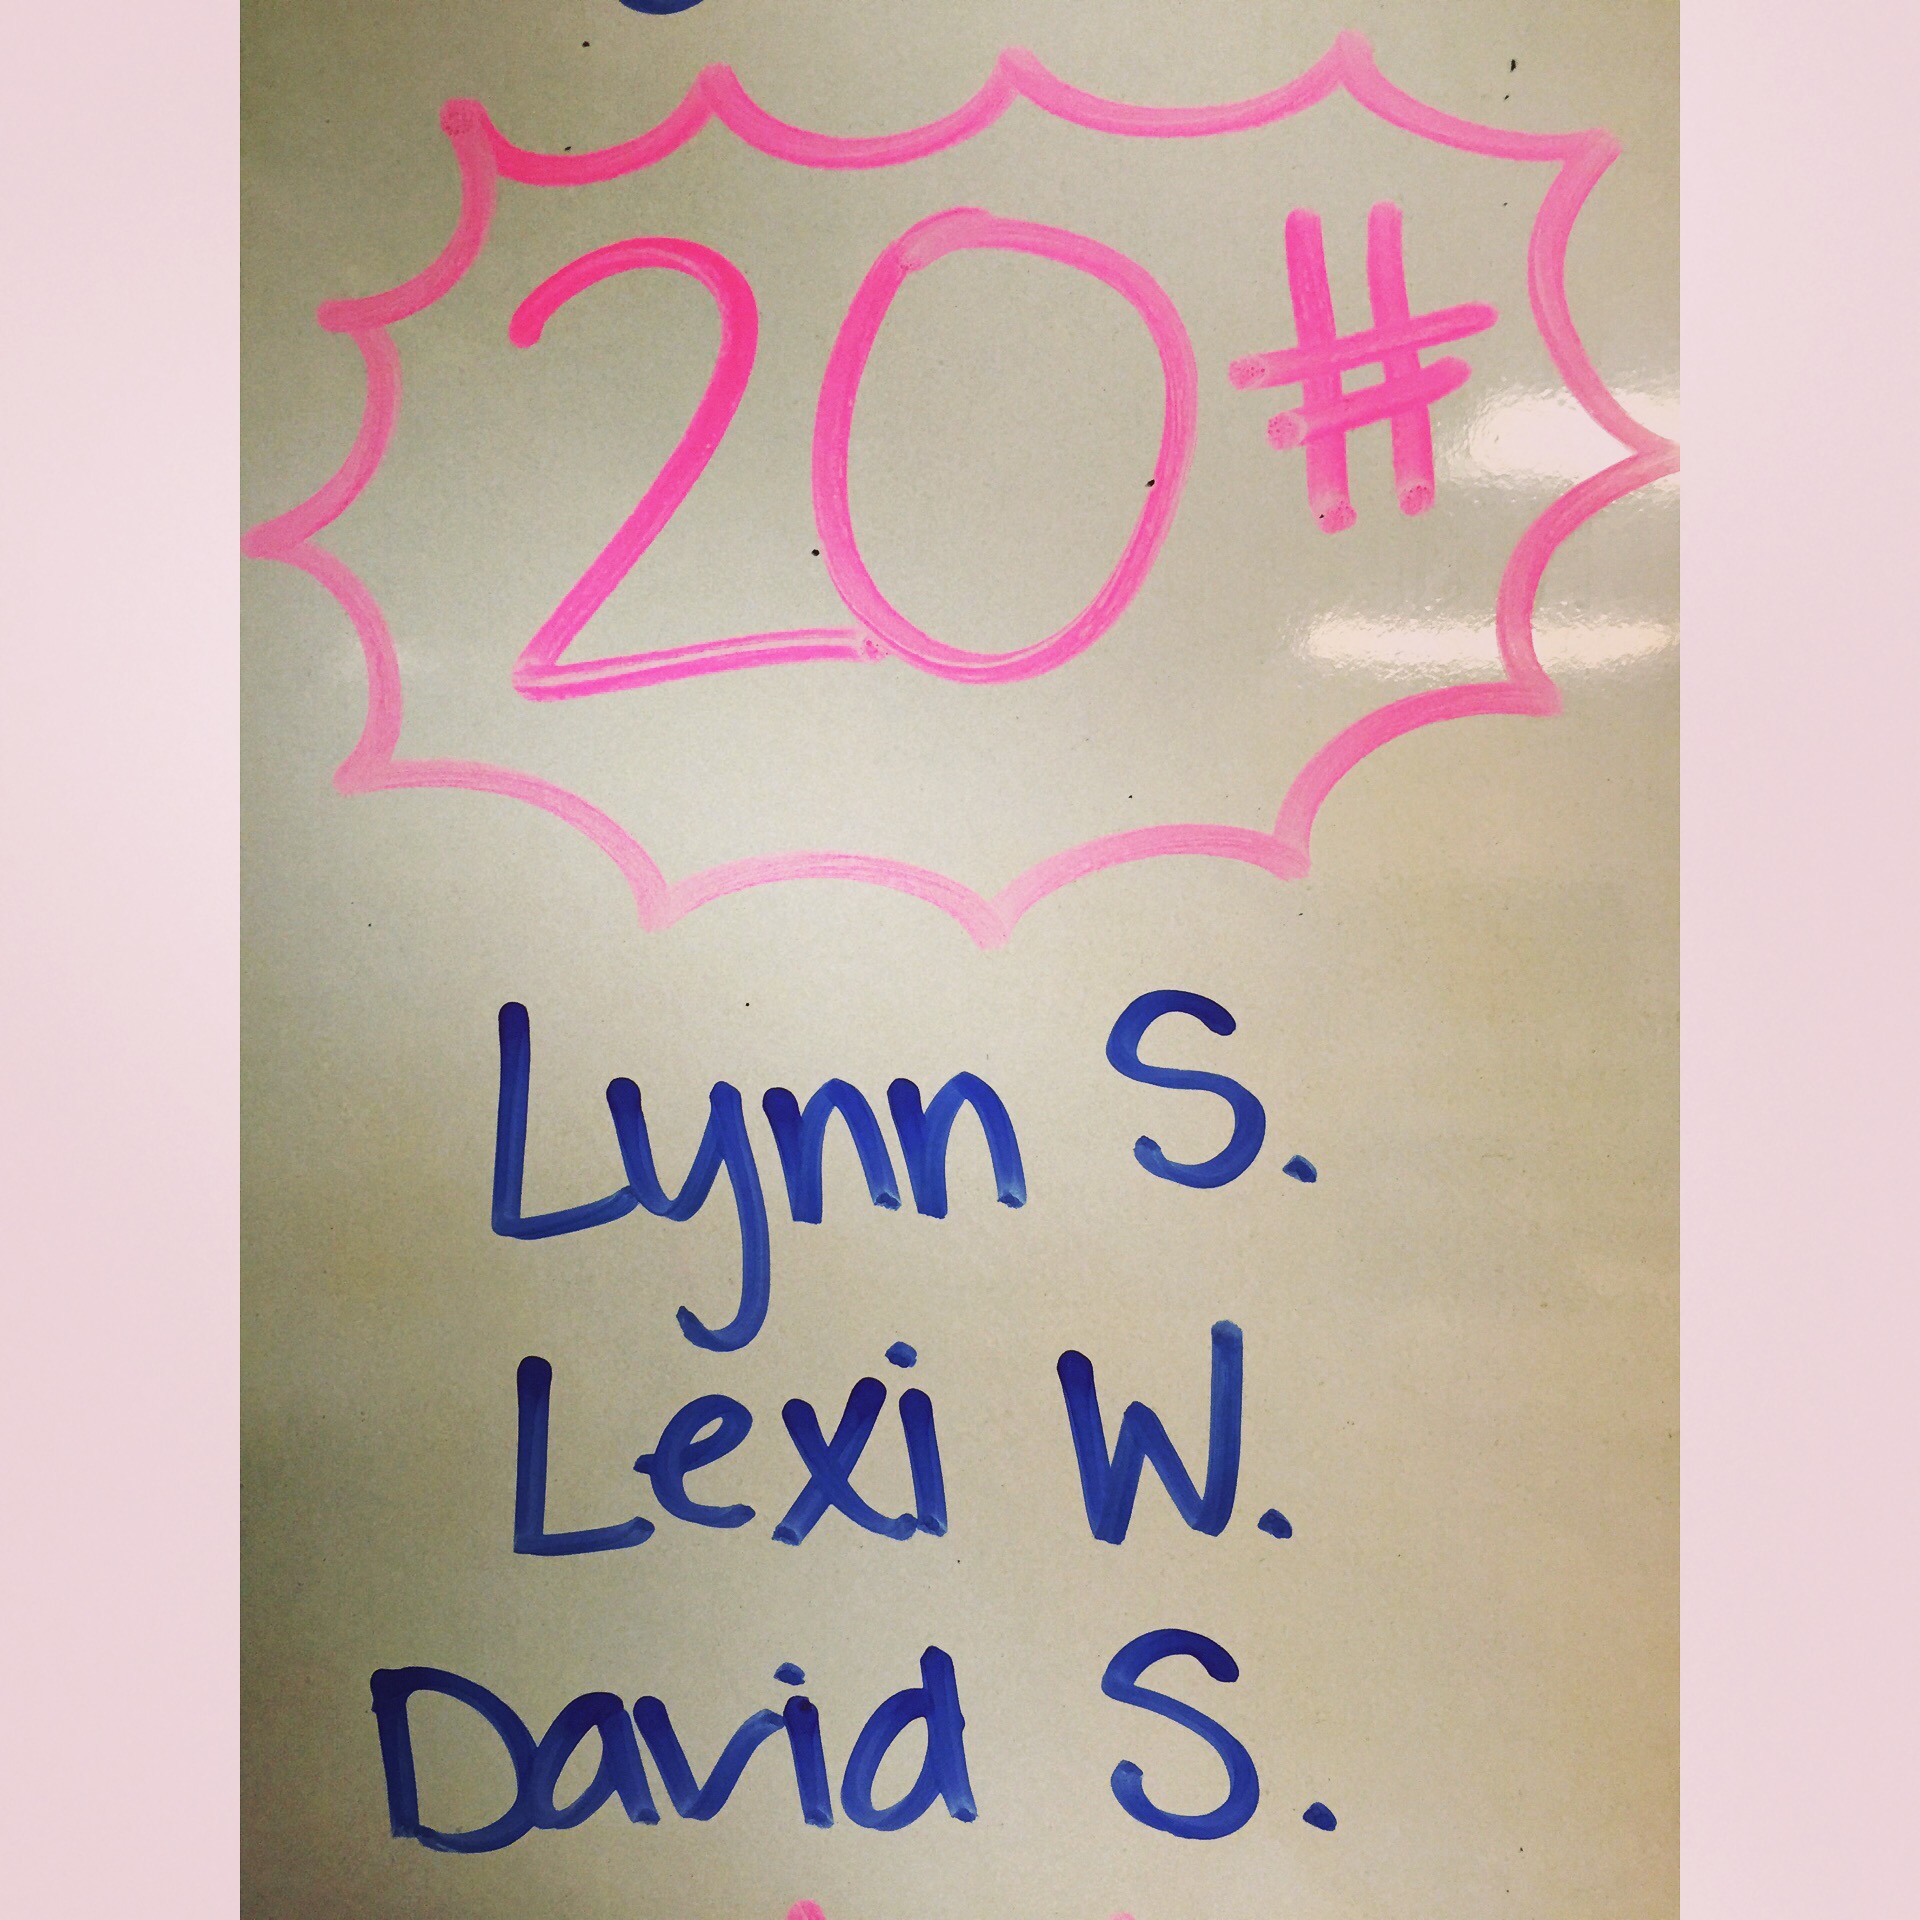 20#
Lynn S.
Lexi W.
David S.